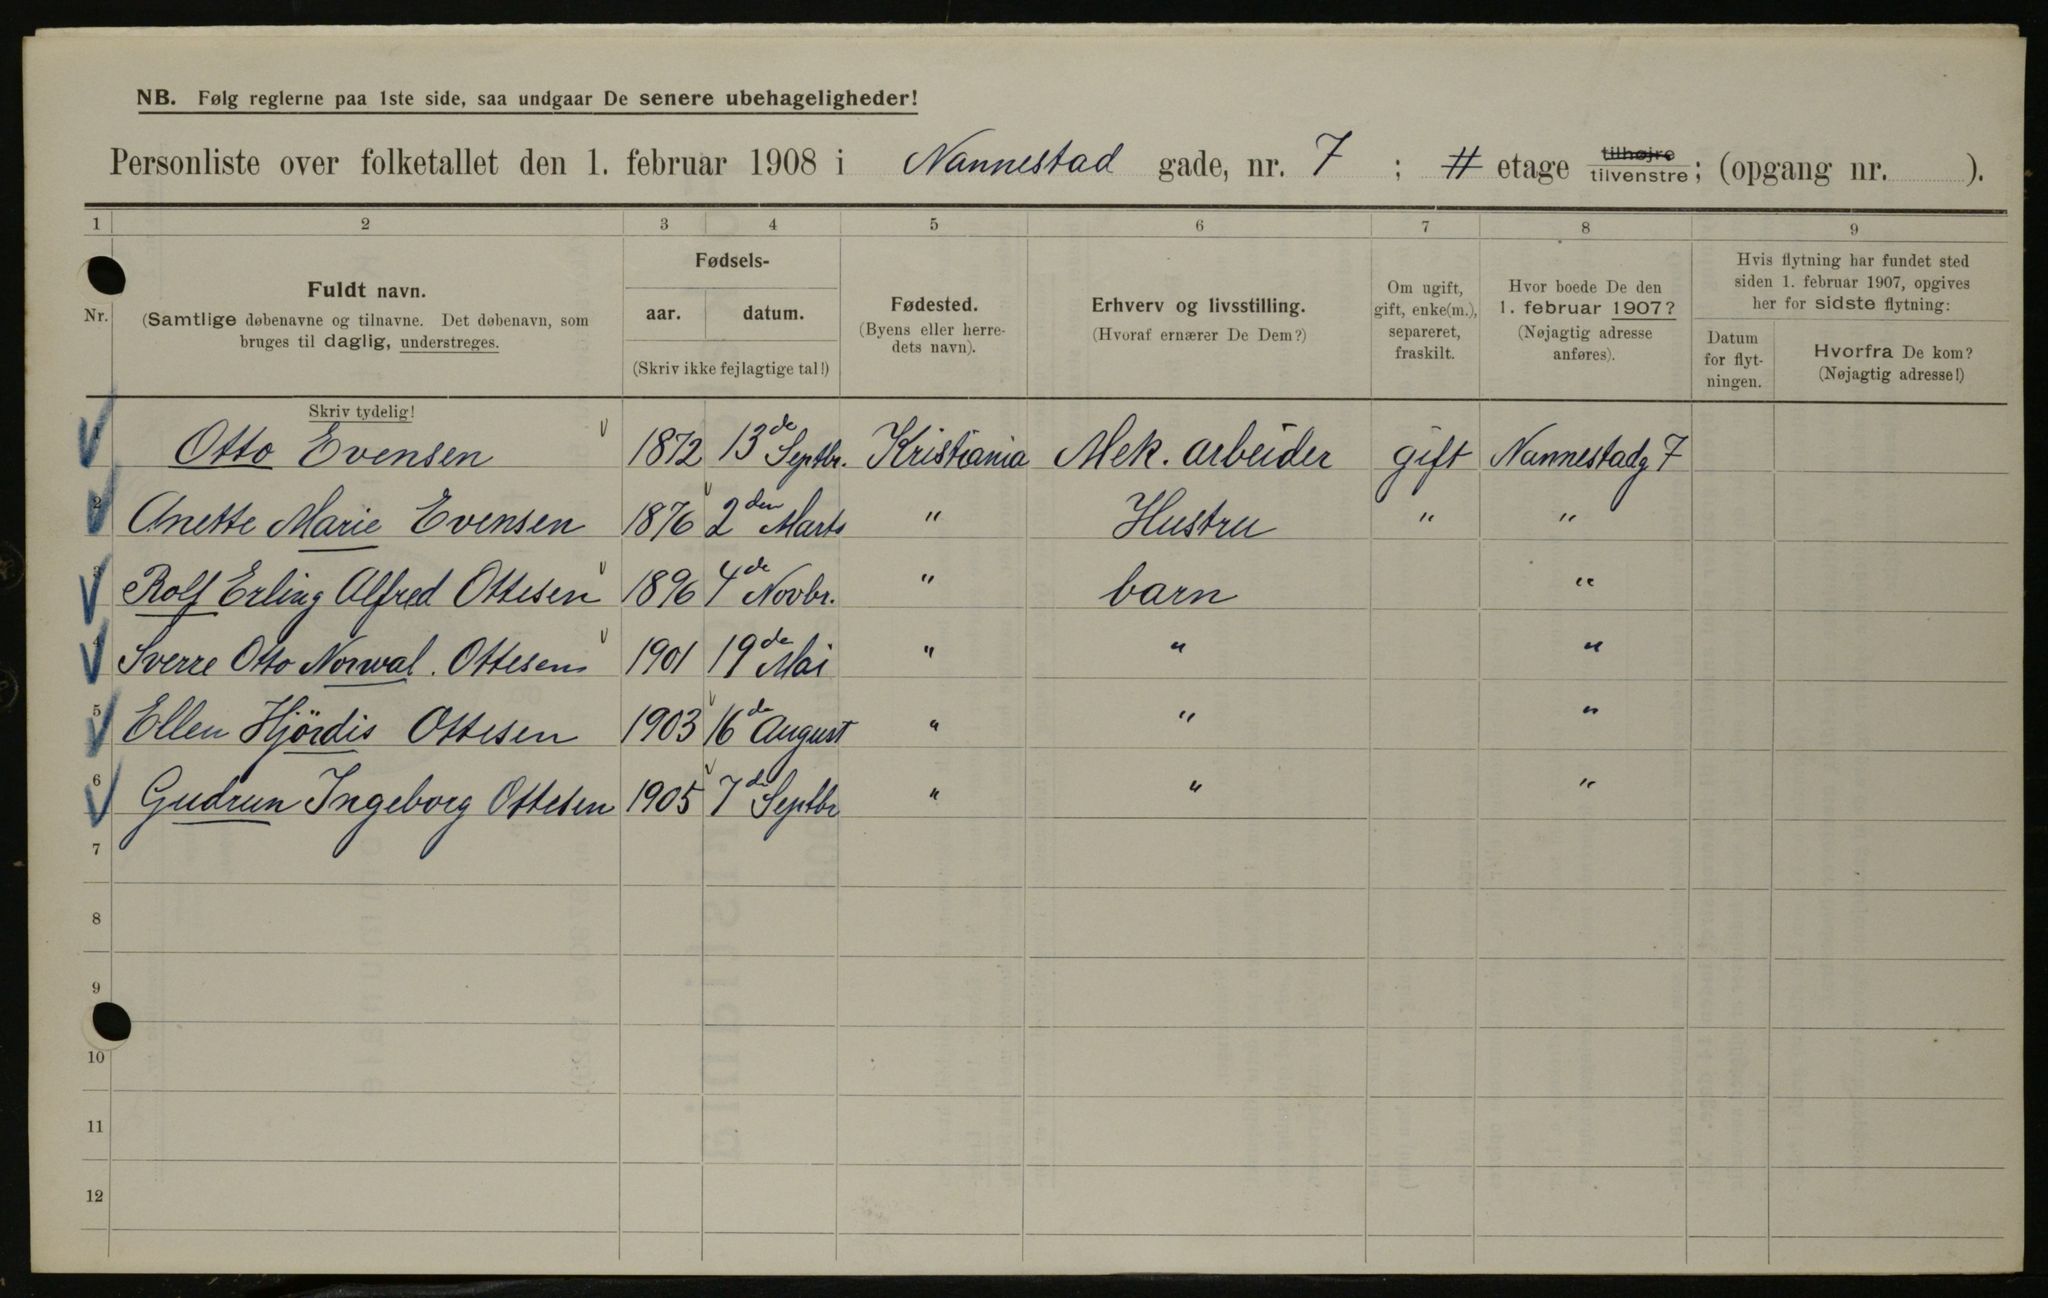 NB. Følg reglerne paa 1ste side, saa undgaar De senere ubehageligheder!
Personliste over folketallet den 1. februar 1908 i Nannestad gade, nr. 7 ; # etage tilhøjre tilvenstre; (opgang nr. ).
1 2 3 4 5 6 7 8 9
Nr.
Fuldt navn.
(Samtlige døbenavne og tilnavne. Det døbenavn, som
bruges til daglig, understreges.
Skriv tydelig!
Fødsels-
aar. datum.
(Skriv ikke fejlagtige tal!)
Fødested.
(Byens eller herre-
dets navn).
Erhverv og livsstilling.
(Hvoraf ernærer De Dem?)
Om ugift,
gift, enke(m.),
separeret,
fraskilt.
Hvor boede De den
1. februar 1907?
(Nøjagtig adresse
anføres).
Hvis flytning har fundet sted
siden 1. februar 1907, opgives
her for sidste flytning:
Datum
for flyt-
ningen.
Hvorfra De kom?
(Nøjagtig adresse!)
Otto Evensen 1872 13de Septbr. Kristiania Mek. arbeider gift Nannestadg 7
2 Anette Marie Evensen 1876 2den Marts " Hustru " "
3 Rolf Erling Alfred Ottesen 1896 4de Novbr. " barn "
4 Sverre Otto Norwal. Ottesen 1901 19de Mai " " "
5 Ellen Hjördis Ottesen 1903 16de August " " "
6 Gudrun Ingeborg Ottesen 1905 7de Septbr " " "
7
8
9
10
11
12